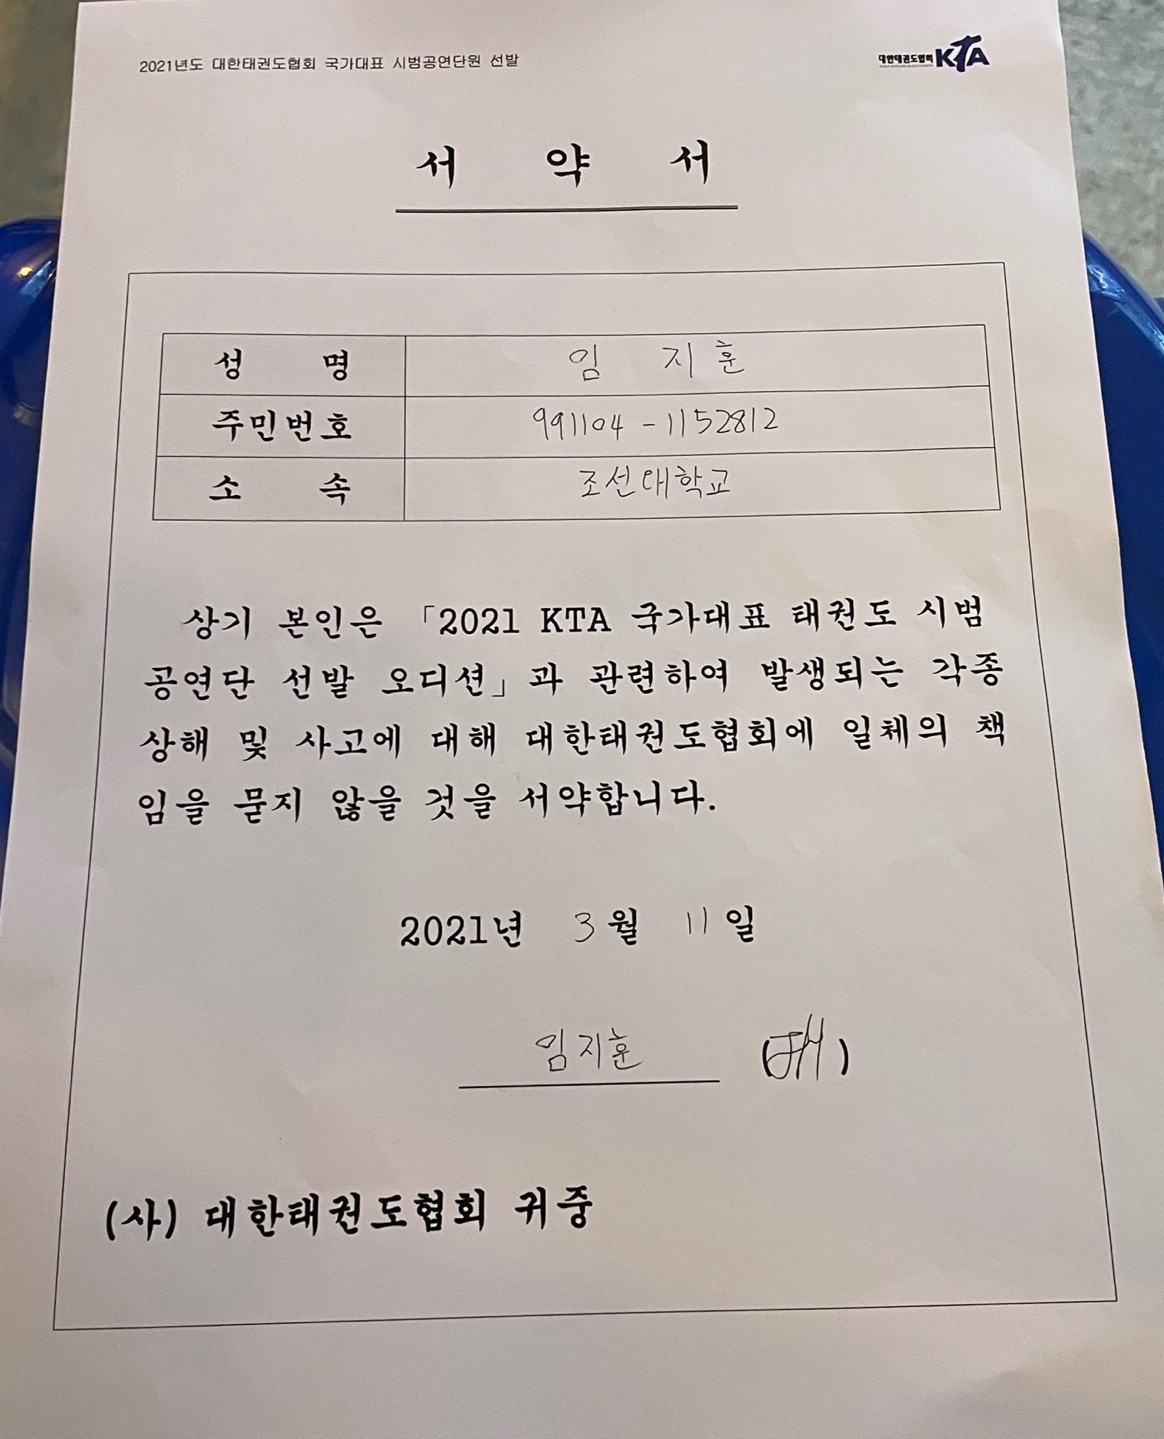 2021년도 대한태권도협회 국가대표 시범공연단원 선발
대한태권도협회 KTA
서 약 서
성 명 임 지훈
주민번호 991104-1152812
소 속 조선대학교
상기 본인은 「2021 KTA 국가대표 태권도 시범
공연단 선발 오디션」과 관련하여 발생되는 각종
상해 및 사고에 대해 대한태권도협회에 일체의 책
임을 묻지 않을 것을 서약합니다.
2021년 3월 11일
임지훈 ( )
(사) 대한태권도협회 귀중